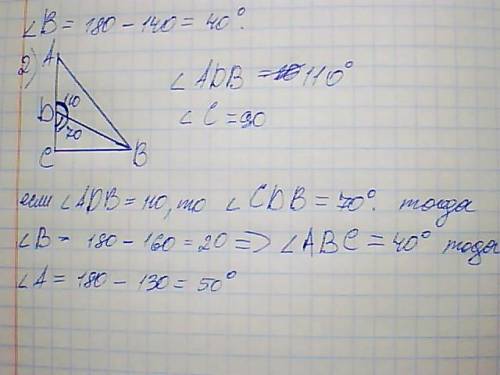 ∠B = 180 - 140 = 40°.
2)
A
D
110
70
C
B
∠ADB = 110°
∠C = 90
если ∠ADB = 110, то ∠CDB = 70°. тогда
∠B = 180 - 160 = 20 => ∠ABC = 40° тогда
∠A = 180 - 130 = 50°